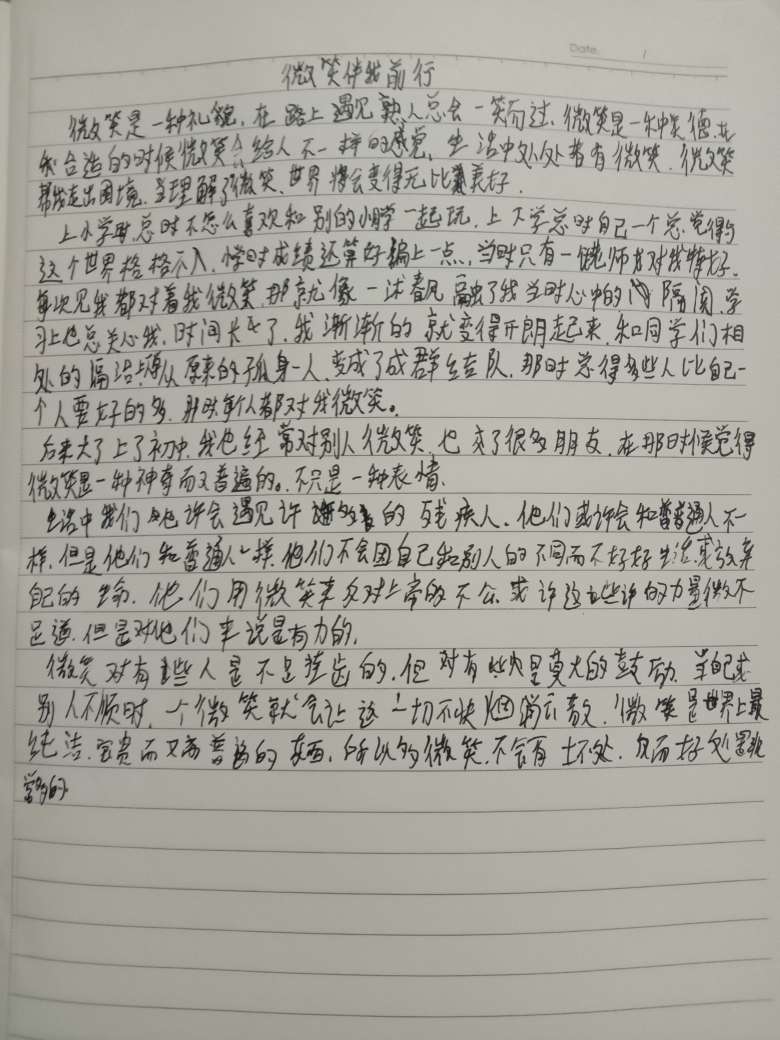 Date. 1
微笑伴我前行
微笑是一种礼貌,在路上遇见熟人总会一笑而过,微笑是一种美德,在
合适的时候微笑会给人不一样的感觉,生活中处处皆有微笑,微笑
帮我走出困境,当理解了微笑,世界将会变得无比美好.
上小学时,总时不怎么喜欢和别的小同学一起玩,上下学总时自己一个,总觉得与
这个世界格格不入,学时成绩还算好偏上一点,当时只有一位老师对我特好,
每次见我都对着我微笑,那就像一沭春风融了我当时心中的隔阂,学
习上也总关心我,时间长了,我渐渐的就变得开朗起来,和同学们相
处的隔,从原来的孤身一人,变成了成群结队,那时总得多些人比自己一
个人要好的多,那时每人都对我微笑。
后来大了上了初中,我也经常对别人微笑,也交了很多朋友,在那时候觉得
微笑是一种神奇而又普遍的。不只是一种表情,
生活中我们也许会遇见许多的残疾人,他们或许会和普通人不一
样,但是他们和普通人一样,他们不会因自己和别人的不同而不好好生活,或放弃
自己的生命,他们用微笑来反对上帝的不公,或许这些许的力量微不
足道,但是对他们来说是有力的,
微笑对有些人是不足挂齿的,但对有些人是莫大的鼓励,当自己或
别人不顺时,一个微笑就会让这一切不快烟消云散,微笑是世界上最
纯洁,宝贵而又普遍的东西,所以多微笑,不会有坏处,反而好处是非
常多的